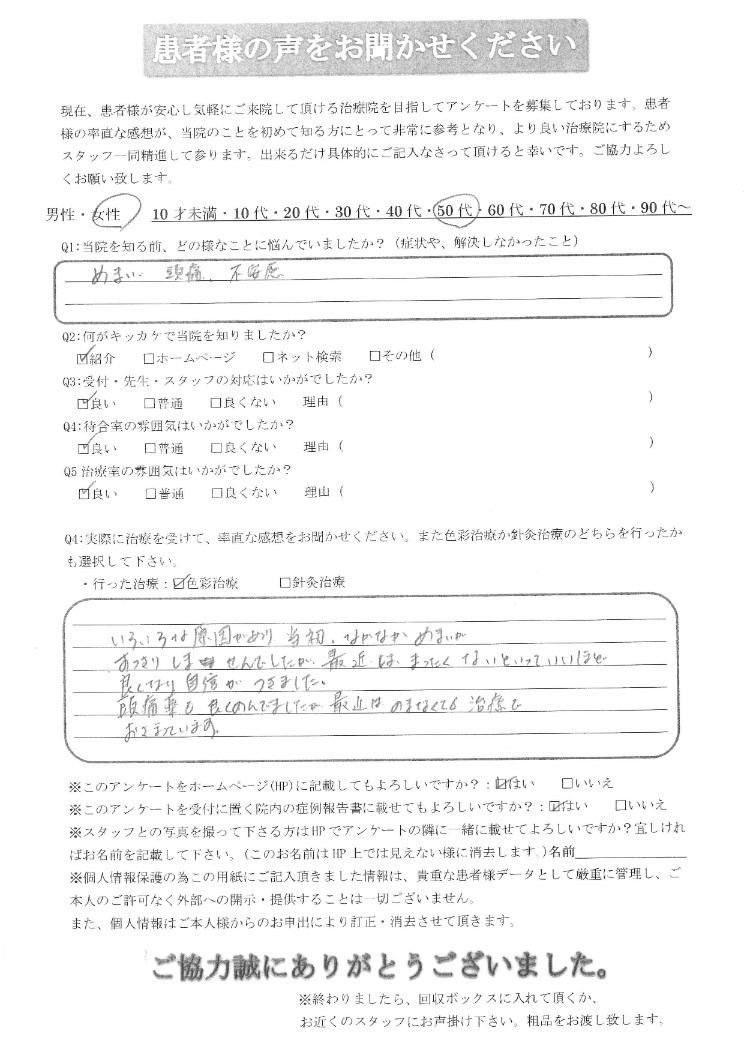 患者様の声をお聞かせください
現在、患者様が安心し気軽にご来院して頂ける治療院を目指してアンケートを募集しております。患者
様の率直な感想が、当院のことを初めて知る方にとって非常に参考となり、より良い治療院にするため
スタッフ一同精進して参ります。出来るだけ具体的にご記入なさって頂けると幸いです。ご協力よろし
くお願い致します。
男性・女性 10才未満・10代・20代・30代・40代・50代・60代・70代・80代・90代～
Q1:当院を知る前、どの様なことに悩んでいましたか？（症状や、解決しなかったこと）
めまい 頭痛、不安感
Q2:何がキッカケで当院を知りましたか？
☑紹介 □ホームページ □ネット検索 □その他（ ）
Q3:受付・先生・スタッフの対応はいかがでしたか？
☑良い □普通 □良くない 理由（ ）
Q4:待合室の雰囲気はいかがでしたか？
☑良い □普通 □良くない 理由（ ）
Q5治療室の雰囲気はいかがでしたか？
☑良い □普通 □良くない 理由（ ）
Q4:実際に治療を受けて、率直な感想をお聞かせください。また色彩治療か針灸治療のどちらを行ったか
も選択して下さい。
・行った治療：☑色彩治療 □針灸治療
いろいろな原因があり当初、なかなかめまいが
すっきりしませんでしたが最近は、まったくないといっていいほど
良くなり自信がつきました。
頭痛薬も良くのんでましたが最近はのまなくても治療で
おさまっています。
※このアンケートをホームページ(HP)に記載してもよろしいですか？：☑はい □いいえ
※このアンケートを受付に置く院内の症例報告書に載せてもよろしいですか？：☑はい □いいえ
※スタッフとの写真を撮って下さる方はHPでアンケートの隣に一緒に載せてよろしいですか？宜しけれ
ばお名前を記載して下さい。（このお名前はHP上では見えない様に消去します。）名前
※個人情報保護の為この用紙にご記入頂きました情報は、貴重な患者様データとして厳重に管理し、ご
本人のご許可なく外部への開示・提供することは一切ございません。
また、個人情報はご本人様からのお申出により訂正・消去させて頂きます。
ご協力誠にありがとうございました。
※終わりましたら、回収ボックスに入れて頂くか、
お近くのスタッフにお声掛け下さい。粗品をお渡し致します。